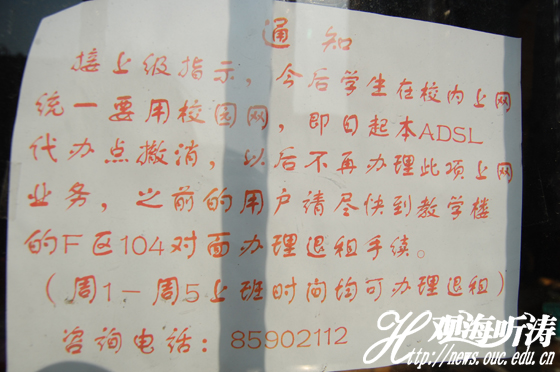 通 知
接上级指示，今后学生在校内上网
统一要用校园网，即日起本ADSL
代办点撤消，以后不再办理此项上网
业务，之前的用户请尽快到教学楼
的F区104对面办理退租手续。
（周1－周5上班时间均可办理退租）
咨询电话：85902112
观海听涛
Http://news.ouc.edu.cn